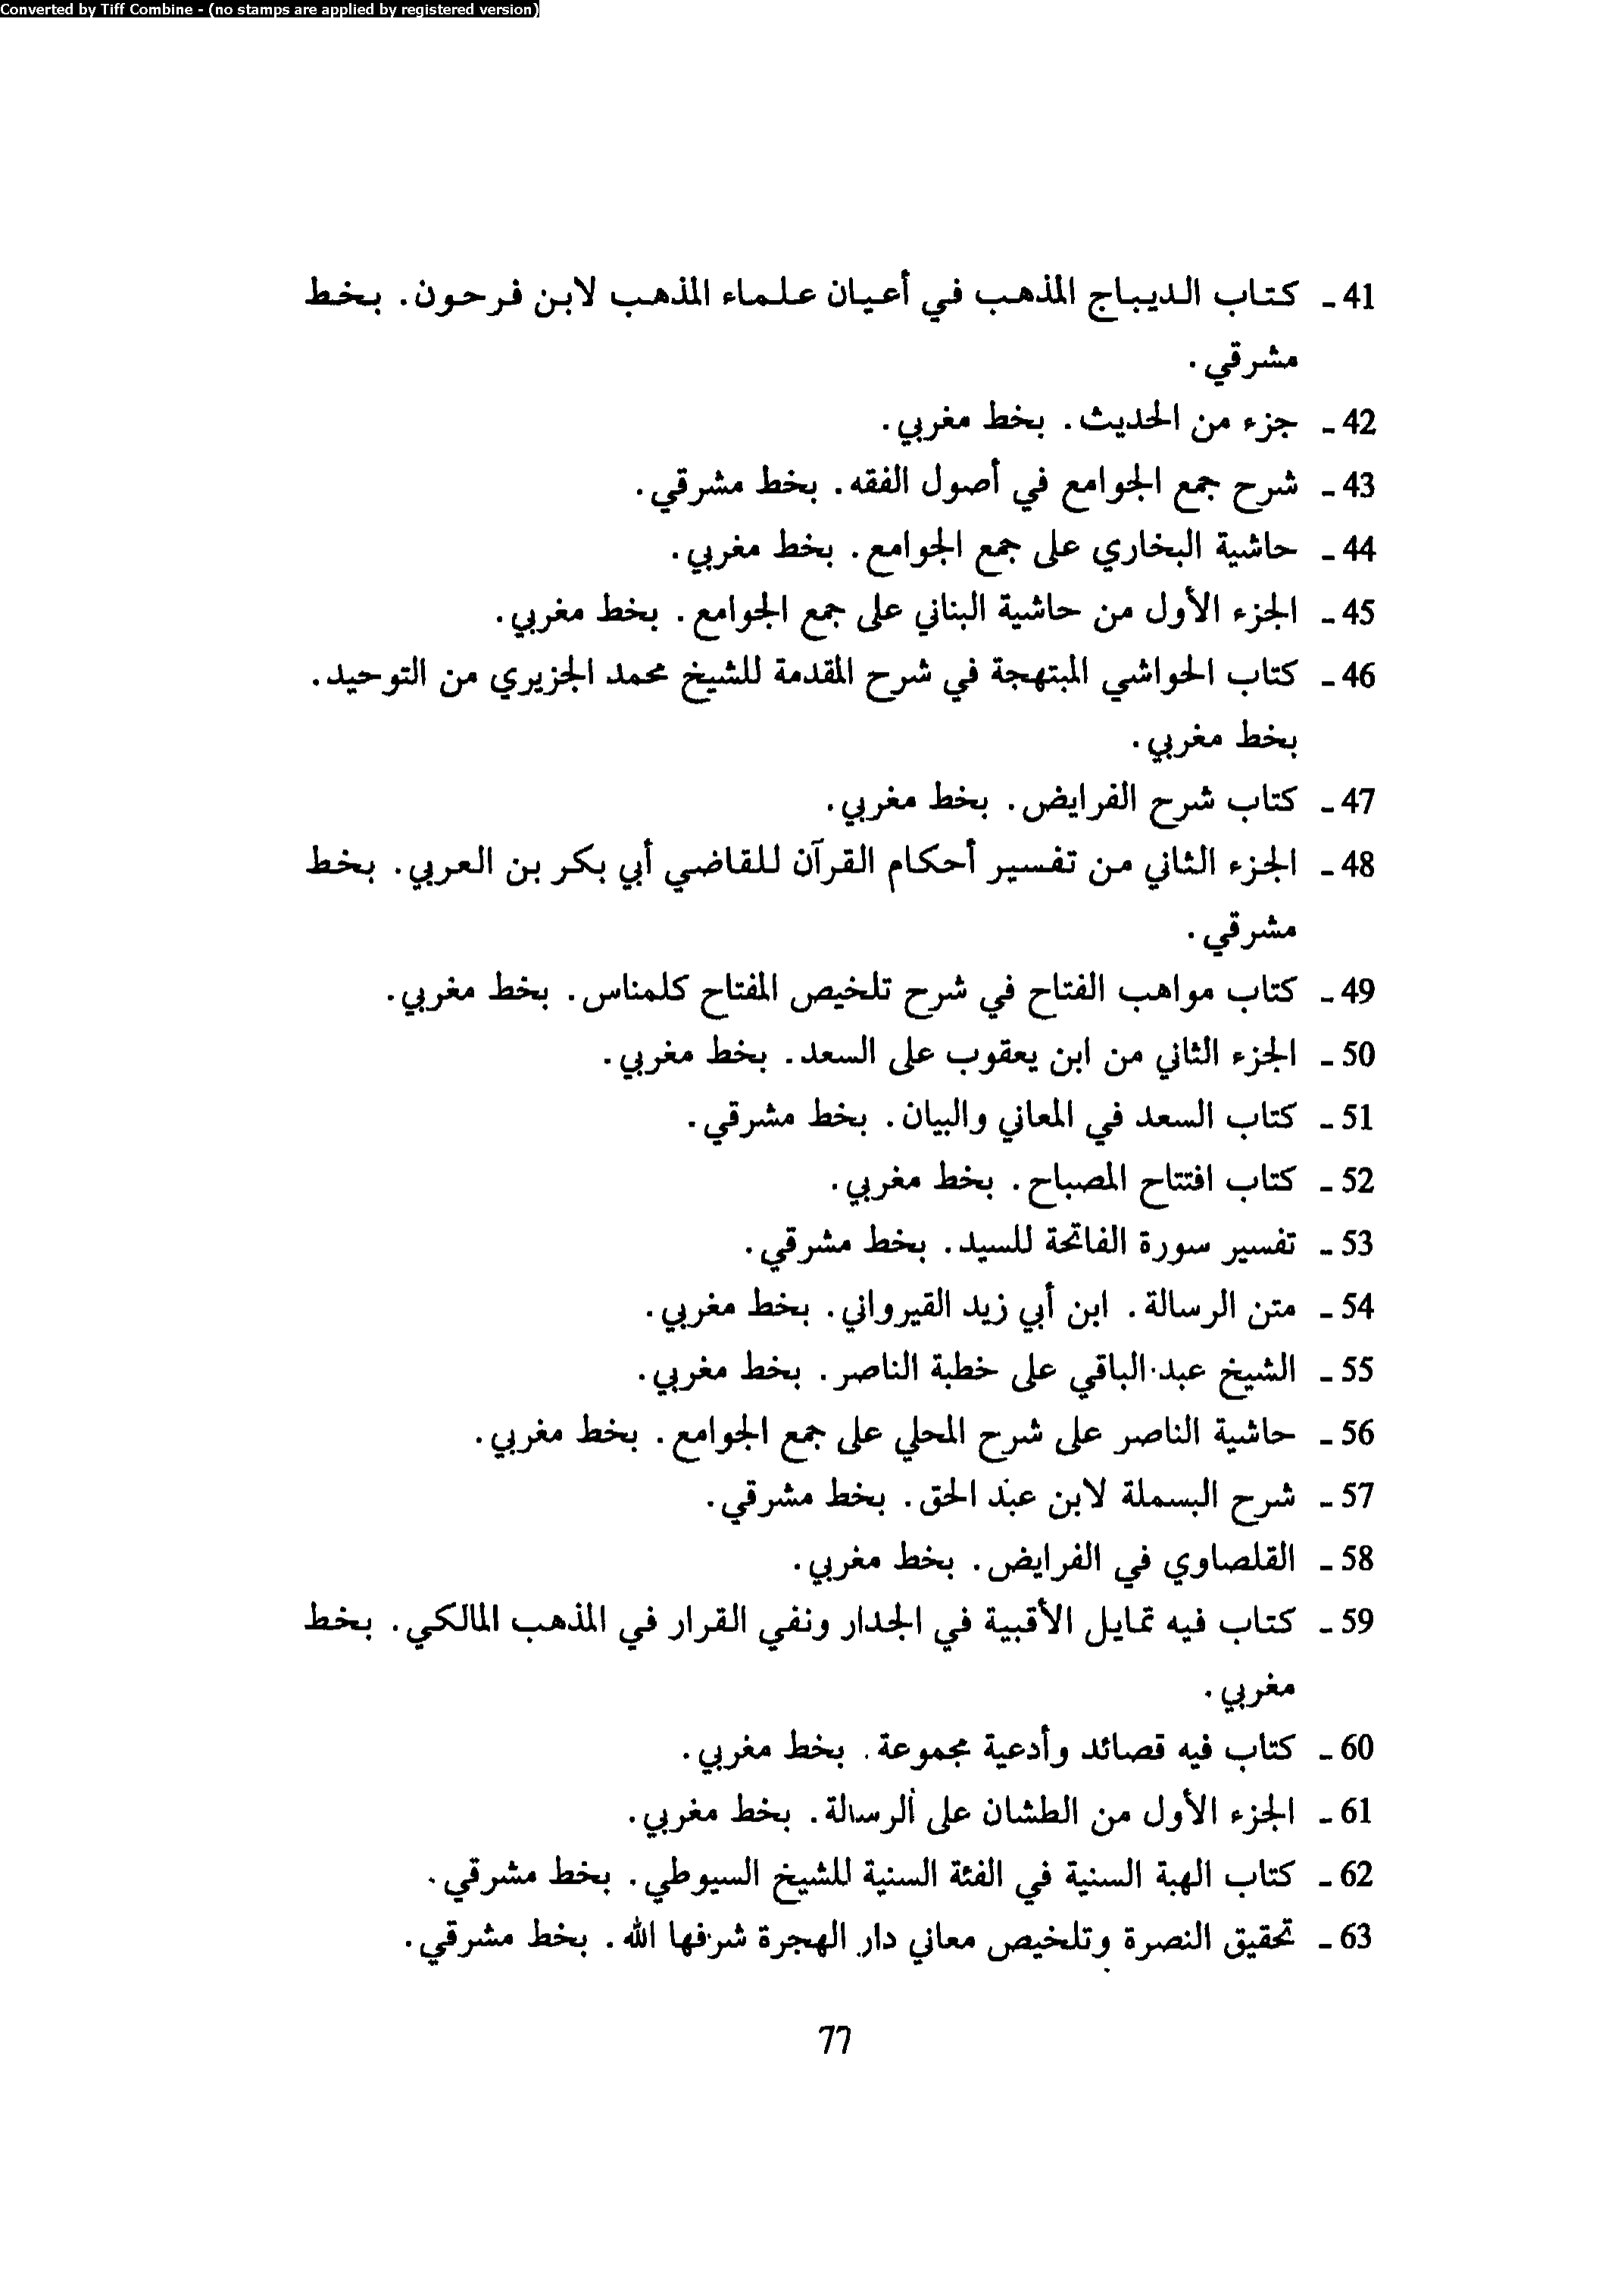 Converted by Tiff Combine - (no stamps are applied by registered version)
41 ـ كتاب الديباج المذهب في أعيان علماء المذهب لابن فرحون. بخط
مشرقي.
42 ـ جزء من الحديث. بخط مغربي.
43 ـ شرح جمع الجوامع في أصول الفقه. بخط مشرقي.
44 ـ حاشية البخاري على جمع الجوامع. بخط مغربي.
45 ـ الجزء الأول من حاشية البناني على جمع الجوامع. بخط مغربي.
46 ـ كتاب الحواشي المبتهجة في شرح المقدمة للشيخ محمد الجزيري من التوحيد.
بخط مغربي.
47 ـ كتاب شرح الفرايض. بخط مغربي.
48 ـ الجزء الثاني من تفسير أحكام القرآن للقاضي أبي بكر بن العربي. بخط
مشرقي.
49 ـ كتاب مواهب الفتاح في شرح تلخيص المفتاح كلمناس. بخط مغربي.
50 ـ الجزء الثاني من ابن يعقوب على السعد. بخط مغربي.
51 ـ كتاب السعد في المعاني والبيان. بخط مشرقي.
52 ـ كتاب افتتاح المصباح. بخط مغربي.
53 ـ تفسير سورة الفاتحة للسيد. بخط مشرقي.
54 ـ متن الرسالة. ابن أبي زيد القيرواني. بخط مغربي.
55 ـ الشيخ عبد الباقي على خطبة الناصر. بخط مغربي.
56 ـ حاشية الناصر على شرح المحلي على جمع الجوامع. بخط مغربي.
57 ـ شرح البسملة لابن عبد الحق. بخط مشرقي.
58 ـ القلصاوي في الفرايض. بخط مغربي.
59 ـ كتاب فيه تمايل الأقبية في الجدار ونفي القرار في المذهب المالكي. بخط
مغربي.
60 ـ كتاب فيه قصائد وأدعية مجموعة. بخط مغربي.
61 ـ الجزء الأول من الطشان على الرسالة. بخط مغربي.
62 ـ كتاب الهبة السنية في الفئة السنية للشيخ السيوطي. بخط مشرقي.
63 ـ تحقيق النصرة وتلخيص معاني دار الهجرة شرفها الله. بخط مشرقي.
77